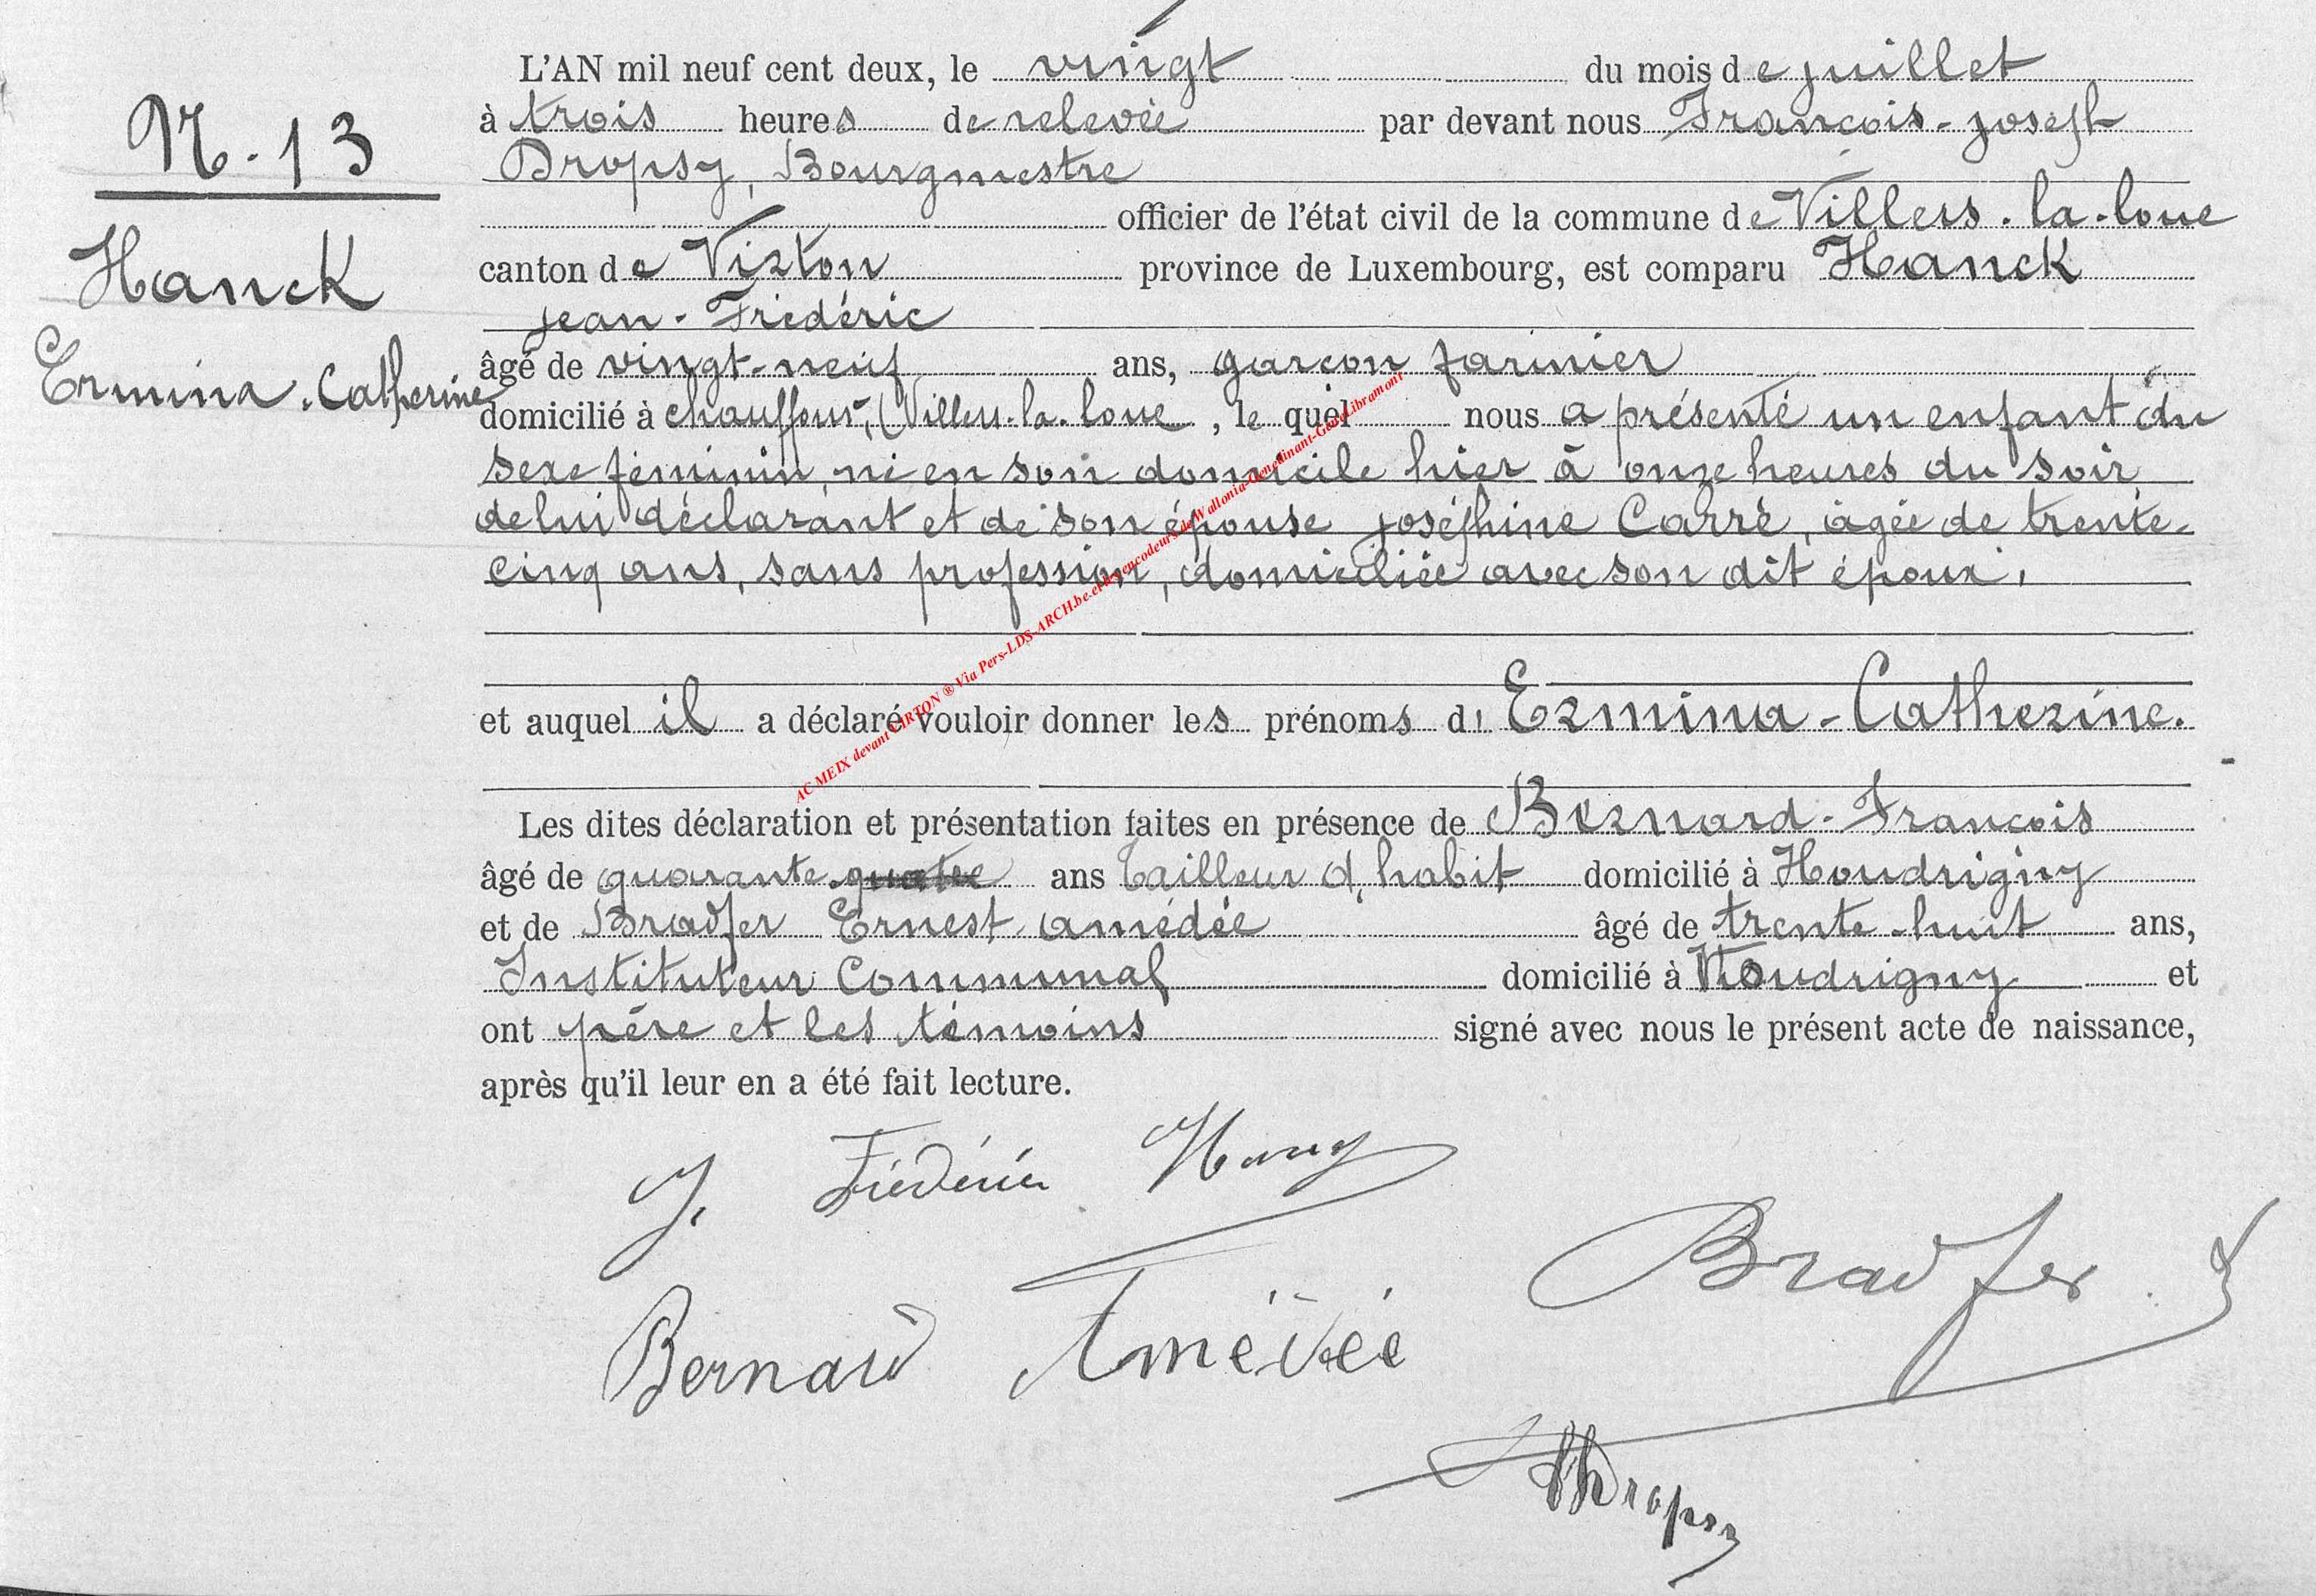 L'AN mil neuf cent deux, le vingt du mois de juillet
N. 13
à trois heures de relevée par devant nous François-joseph
Dropsy, Bourgmestre
officier de l'état civil de la commune de Villers-la-loue
Hanck
canton de Virton province de Luxembourg, est comparu Hanck
jean-Frédéric
Ermina-Catherine
âgé de vingt-neuf ans, garçon farinier
domicilié à chauffour, (Villers-la-loue, le quel nous a présenté un enfant du
sexe féminin, né en son domicile hier à onze heures du soir
de lui déclarant et de son épouse joséphine Carré, âgée de trente-
cinq ans, sans profession, domiciliée avec son dit époux,
et auquel il a déclaré vouloir donner les prénoms d' Ermina-Catherine.
AC MEIX devant VIRTON ® Via Pers-LDS-ARCH.be et les encodeurs de Wallonia-Genedinant-GeneLibramont
Les dites déclaration et présentation faites en présence de Bernard-François
âgé de quarante-quatre ans tailleur d'habit domicilié à Houdrigny
et de Bradfer Ernest amédée âgé de trente-huit ans,
Instituteur Communal domicilié à Houdrigny et
ont père et les témoins signé avec nous le présent acte de naissance,
après qu'il leur en a été fait lecture.
J. Frédéric Hang
Bradfer
Bernard Amédée
Dropsy